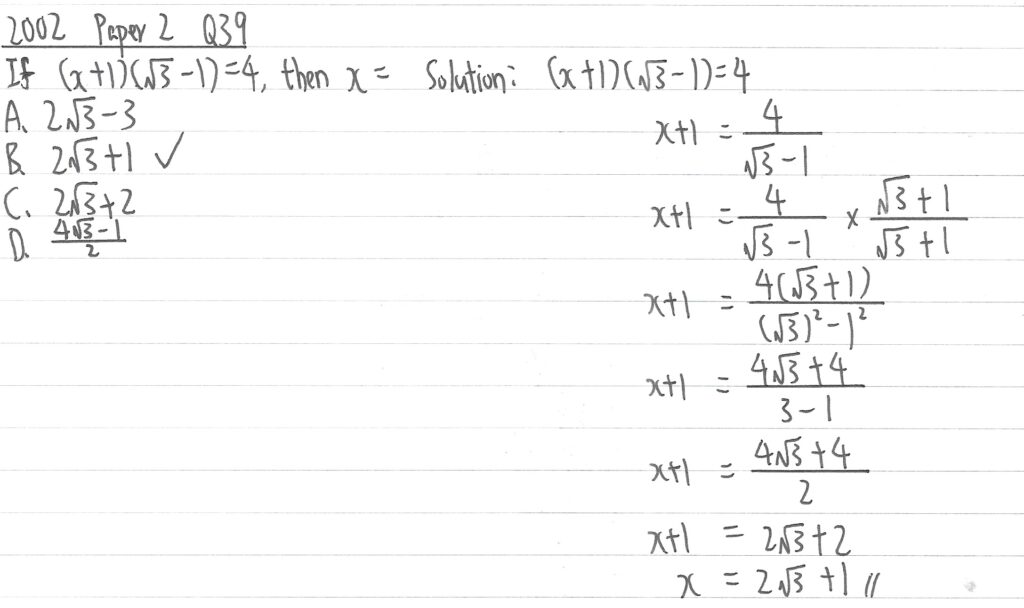 2002 Paper 2 Q39
If (x+1)(√3-1)=4, then x =
A. 2√3-3
B. 2√3+1 ✓
C. 2√3+2
D. (4√3-1)/2
Solution: (x+1)(√3-1)=4
x+1 = 4/(√3-1)
x+1 = 4/(√3-1) × (√3+1)/(√3+1)
x+1 = 4(√3+1)/((√3)²-1²)
x+1 = (4√3+4)/(3-1)
x+1 = (4√3+4)/2
x+1 = 2√3+2
x = 2√3+1 //